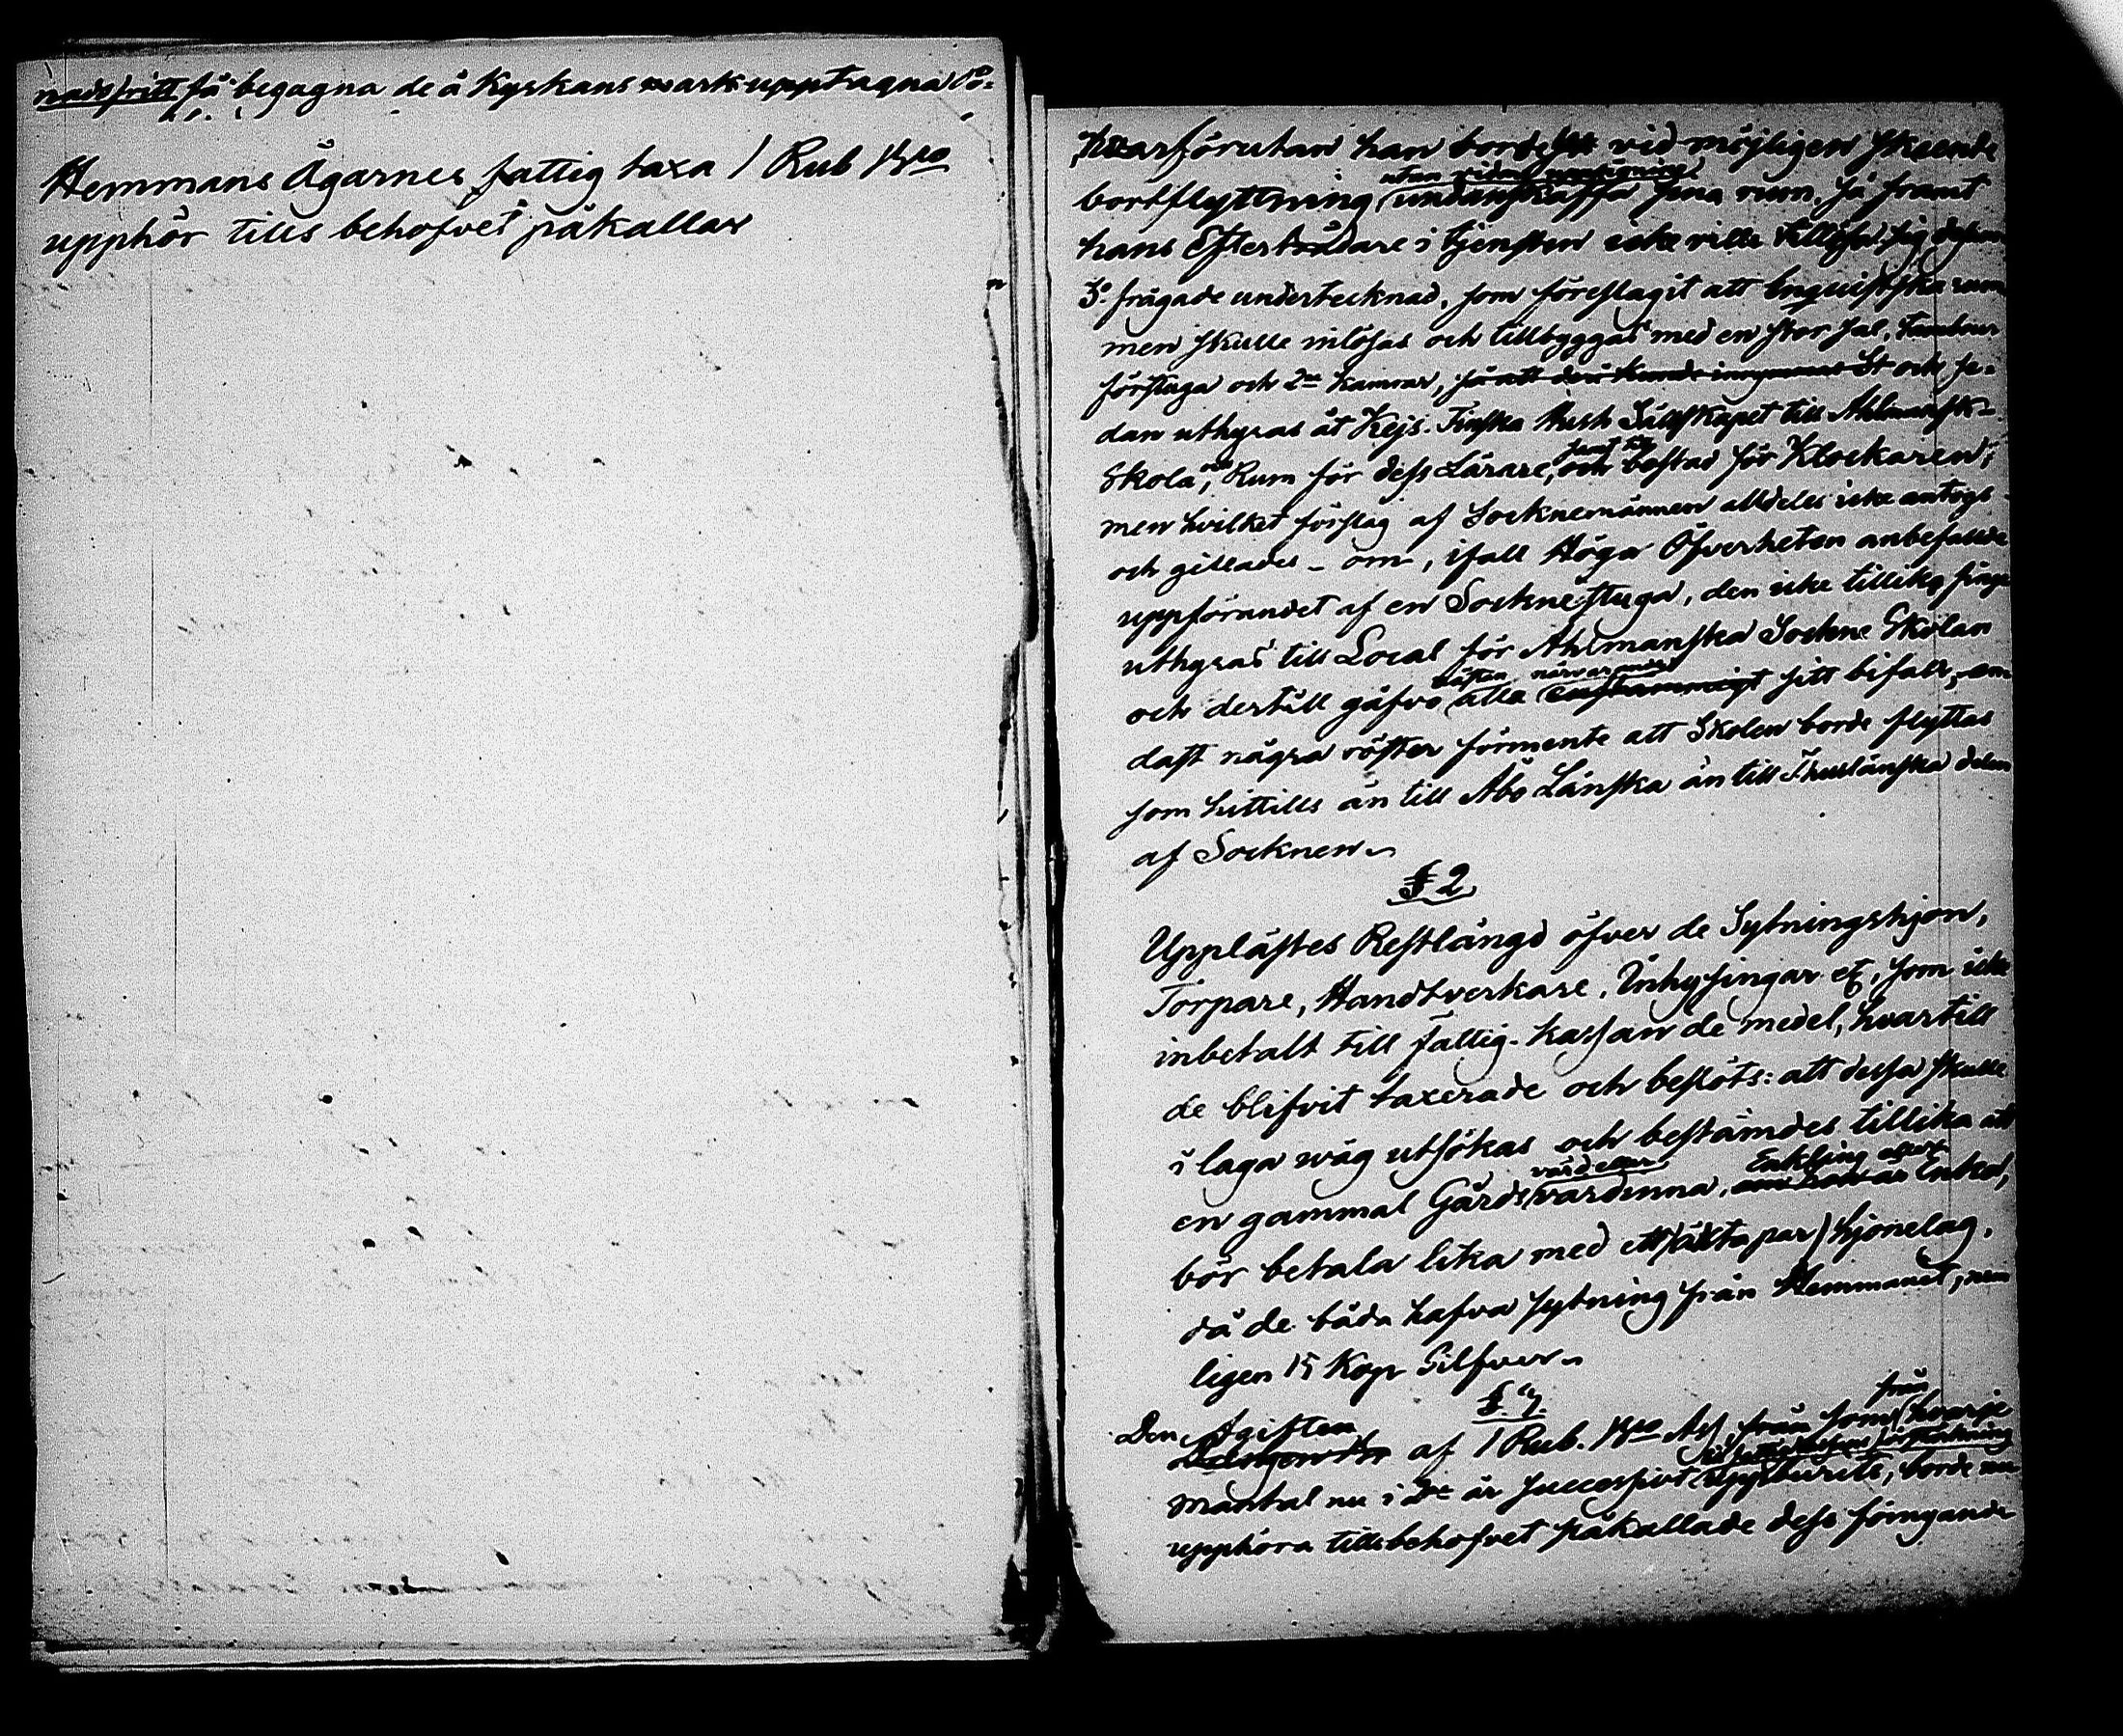 nadsfritt få begagna de å Kyrkans mark upptagna
Hemmans Ägarnes fattig taxa 1 Rub
upphör tills behofvet påkallar
hvarförutan han borde vid möjligen skeende
utan vidare
bortflyttning undanskaffa sina rum, så framt
hans Efterträdare i tjensten icke ville tillösa sig desamma
3o frågade undertecknad, som föreslagit att Enquistska rum
men skulle inlösas och tillbyggas med en stor sal, tambur
förstuga och 2ne kamrar, så att der kunde och se-
dan uthyras åt Kejs. Finska Hush Sällskapet till Ahlmansk-
samt till
Skola, och Rum för dess Lärare, och bostad för Klockaren;
men hvilket förslag af Socknemännen alldeles icke antogs
och gillades – om, ifall Höga Öfverheten anbefallde
uppförandet af en Socknestuga, den icke tillika finge
uthyras till Local för Ahlmanska Sockne Skolan
nästan närvarande
och dertill gåfvo alla enstämmigt sitt bifall, en-
dast några röster förmente att Skolan borde flyttas
som hittills än till Åbo Länska än till Thustlänska delen
af Socknen
§ 2
Upplästes Restlängd öfver de Sytningshjon,
Torpare, Handtverkare, Inhysingar etc, som icke
inbetalt till fattig-kassan de medel, hvartill
de blifvit taxerade och beslöts: att dessa skulle
i laga wäg utsökas och bestämdes tillika att
värd eller Enkling eller
en gammal Gårds värdinna, Enka,
bör betala lika med ett (äkta par) hjonelag,
då de båda hafva sytning från Hemmanet, nem
ligen 15 Kop Silfver
§ 3.
från
Den Afgiften af 1 Rub. Ass, från som hvarje
till fattigkassans förstärkning
mantal nu i 2ne år successivt uppburits, borde nu
upphöra tills behofvet påkallade dess förnyande